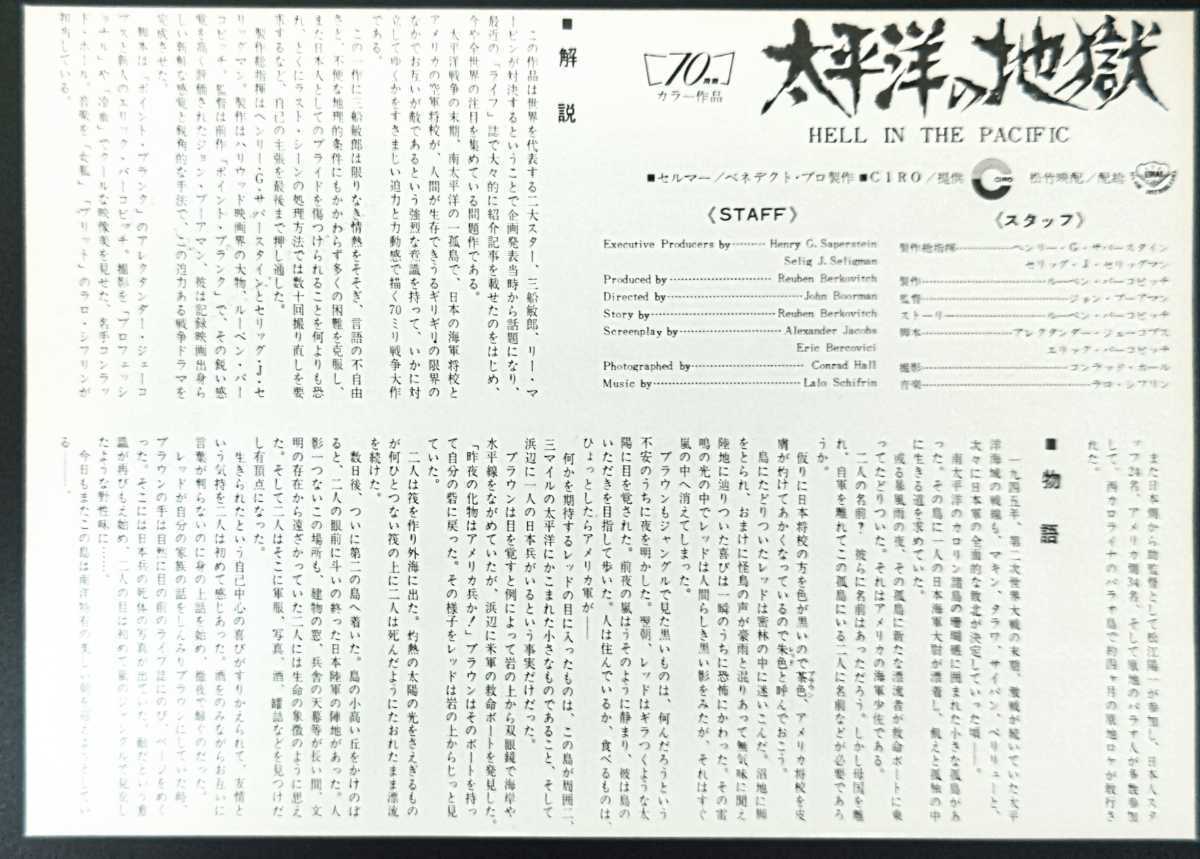 太平洋の地獄
HELL IN THE PACIFIC
70mm
カラー作品
■セルマー/ベネデクト・プロ製作■CIRO/提供
CIRO
松竹映配/配給
《STAFF》
Executive Producers by Henry G. Saperstein
Selig J. Seligman
Produced by Reuben Berkovitch
Directed by John Boorman
Story by Reuben Berkovitch
Screenplay by Alexander Jacobs
Eric Bercovici
Photographed by Conrad Hall
Music by Lalo Schifrin
《スタッフ》
製作総指揮 ヘンリー・G・サパースタイン
セリッグ・J・セリッグマン
製作 ルーベン・バーコビッチ
監督 ジョン・ブーアマン
ストーリー ルーベン・バーコビッチ
脚本 アレクサンダー・ジェーコブス
エリック・バーコビッチ
撮影 コンラッド・ホール
音楽 ラロ・シフリン
■解説
この作品は世界を代表する二大スター、三船敏郎、リー・マ
ービンが対決するということで企画発表当時から話題になり、
最近の「ライフ」誌で大々的に紹介記事を載せたのをはじめ、
今や全世界の注目を集めている問題作である。
太平洋戦争の末期、南太平洋の一孤島で、日本の海軍将校と
アメリカの空軍将校が、人間が生存できうるギリギリの限界の
なかでお互いが敵であるという強烈な意識を持って、いかに対
立してゆくかをすさまじい迫力と力動感で描く70ミリ戦争大作
である。
この一作に三船敏郎は限りなき情熱をそそぎ、言語の不自由
さと、不便な地理的条件にもかかわらず多くの困難を克服し、
また日本人としてのプライドを傷つけられることを何よりも恐
れ、とくにラスト・シーンの処理方法では数十回撮り直しを要
求するなど、自己の主張を最後まで押し通した。
製作総指揮はヘンリー・G・サパースタインとセリッグ・J・セ
リッグマン。製作はハリウッド映画界の大物、ルーベン・バー
コビッチ、監督は前作「ポイント・ブランク」で、その鋭い感
覚を高く評価されたジョン・ブーアマン、彼は記録映画出身ら
しい斬新な感覚と鋭角的な手法で、この迫力ある戦争ドラマを
完成させた。
脚本は「ポイント・ブランク」のアレクサンダー・ジェーコ
ブスと新人のエリック・バーコビッチ、撮影を「プロフェッシ
ョナル」や「冷血」でクールな映像美を見せた、名手コンラッ
ド・ホール、音楽を「女狐」「ブリット」のラロ・シフリンが
担当している。
また日本側から助監督として松江陽一が参加し、日本人スタ
ッフ24名、アメリカ側34名、そして現地のパラオ人が多数参加
して、西カロライナのパラオ島で約四ヶ月の現地ロケが敢行さ
れた。
■物語
一九四五年、第二次世界大戦の末期、激戦が続いていた太平
洋海域の戦線も、マキン、タラワ、サイパン、ペリリューと、
次々に日本軍の全面的な敗北が決定していった頃――。
南太平洋のカロリン諸島の珊瑚礁に囲まれた小さな孤島があ
った。その島に一人の日本海軍大尉が漂着し、飢えと孤独の中
に生きる道を求めていた。
或る暴風雨の夜、その孤島に新たな漂流者が救命ボートに乗
ってたどりついた。それはアメリカの海軍少佐である。
二人の名前？ 彼らに名前はあっただろう。しかし母国を離
れ、自軍を離れてこの孤島にいる二人に名前などが必要であろ
うか。
仮りに日本将校の方を色が黒いので茶色、アメリカ将校を皮
膚が灼けてあかくなっているので朱色と呼んでおこう。
島にたどりついたレッドは密林の中に迷いこんだ。沼地に脚
をとられ、おまけに怪鳥の声が豪雨と混りあって無気味に聞え
陸地に辿りついた喜びは一瞬のうちに恐怖にかわった。その雷
鳴の光の中でレッドは人間らしき黒い影をみたが、それはすぐ
嵐の中へ消えてしまった。
ブラウンもジャングルで見た黒いものは、何んだろうという
不安のうちに夜を明かした。翌朝、レッドはギラつくような太
陽に目を覚された。前夜の嵐はうそのように静まり、彼は島の
いただきを目指して歩いた。人は住んでいるか、食べるものは、
ひょっとしたらアメリカ軍が――
何かを期待するレッドの目に入ったものは、この島が周囲二、
三マイルの太平洋にかこまれた小さなものであること、そして
浜辺に一人の日本兵がいるという事実だけだった。
ブラウンは目を覚すと例によって岩の上から双眼鏡で海岸や
水平線をながめていたが、浜辺に米軍の救命ボートを発見した。
「昨夜の化物はアメリカ兵か！」ブラウンはそのボートを持っ
て自分の砦に戻った。その様子をレッドは岩の上からじっと見
ていた。
二人は筏を作り外海に出た。灼熱の太陽の光をさえぎるもの
が何ひとつない筏の上に二人は死んだようにたおれたまま漂流
を続けた。
数日後、ついに第二の島へ着いた。島の小高い丘をかけのぼ
ると、二人の眼前に斗いの終った日本陸軍の陣地があった。人
影一つないこの場所も、建物の窓、兵舎の天幕等が長い間、文
明の存在から遠ざかっていた二人には生命の象徴のように思え
た。そして二人はそこに軍服、写真、酒、罐詰などを見つけだ
し有頂天になった。
生きられたという自己中心の喜びがすりかえられて、友情と
いう気持を二人は初めて感じあった。酒をのみながらお互いに
言葉が判らないのに身の上話を始め、徹夜で騒ぐのだった。
レッドが自分の家族の話をしんみりブラウンにしていた時、
ブラウンの手は自然に目の前のライフ誌にのび、ページをめく
った。そこには日本兵の死体の写真が出ていた。敵だという意
識が再びもえ始め、二人の目は初めて嵐のジャングルで見かし
たような野性味に……。
今日もまたこの島は南洋特有の
る――。